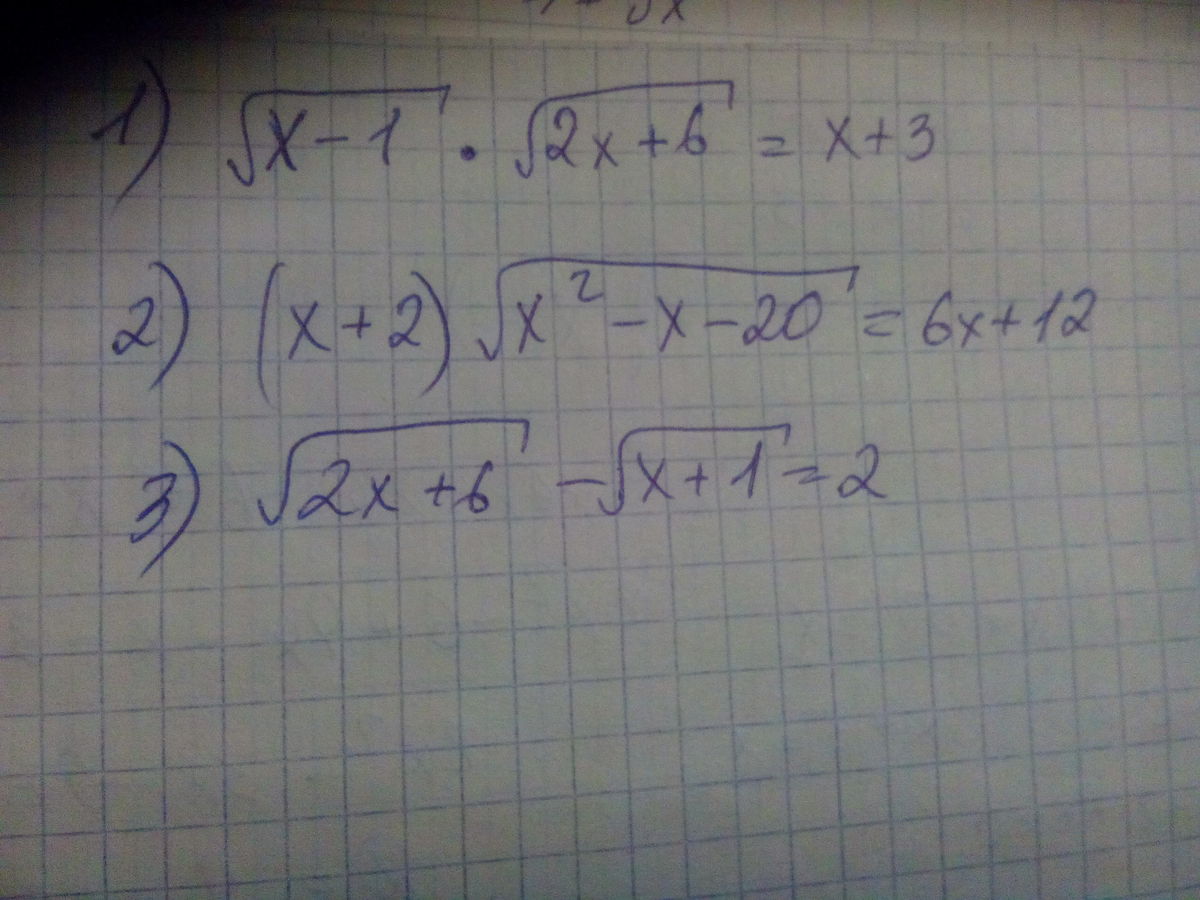 1) √(x-1) · √(2x+6) = x+3
2) (x+2)√(x²-x-20) = 6x+12
3) √(2x+6) - √(x+1) = 2